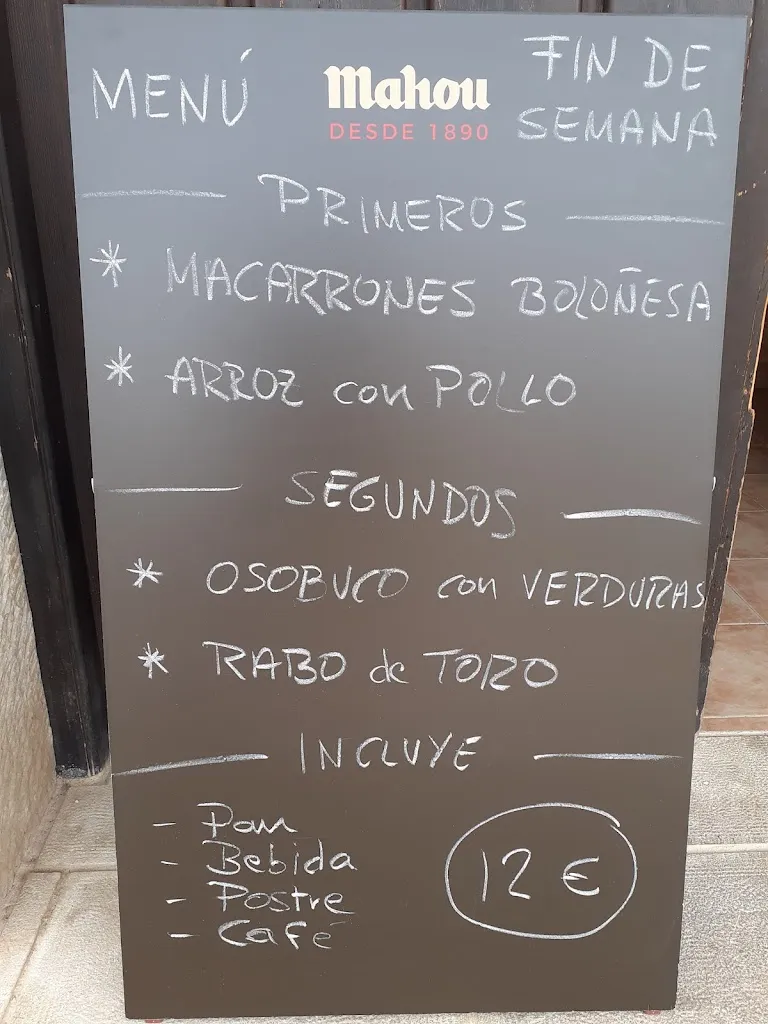 MENÚ
Mahou
DESDE 1890
FIN DE
SEMANA
PRIMEROS
* MACARRONES BOLOÑESA
* ARROZ con POLLO
SEGUNDOS
* OSOBUCO con VERDURAS
* RABO de TORO
INCLUYE
- Pan
- Bebida
- Postre
- Café
12 €